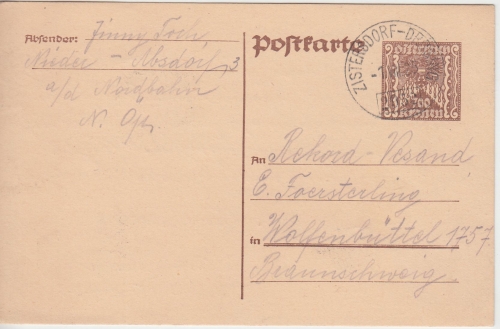 Absender: Jinny Tosch
Nieder-Absdorf 3
a/d Nordbahn
N. Öst.
Postkarte
ZISTERSDORF-DR
ÖSTERREICH
200
KRONEN
An Rekord-Vesand
E. Foersterling
in Wolfenbüttel 1757.
Braunschweig.